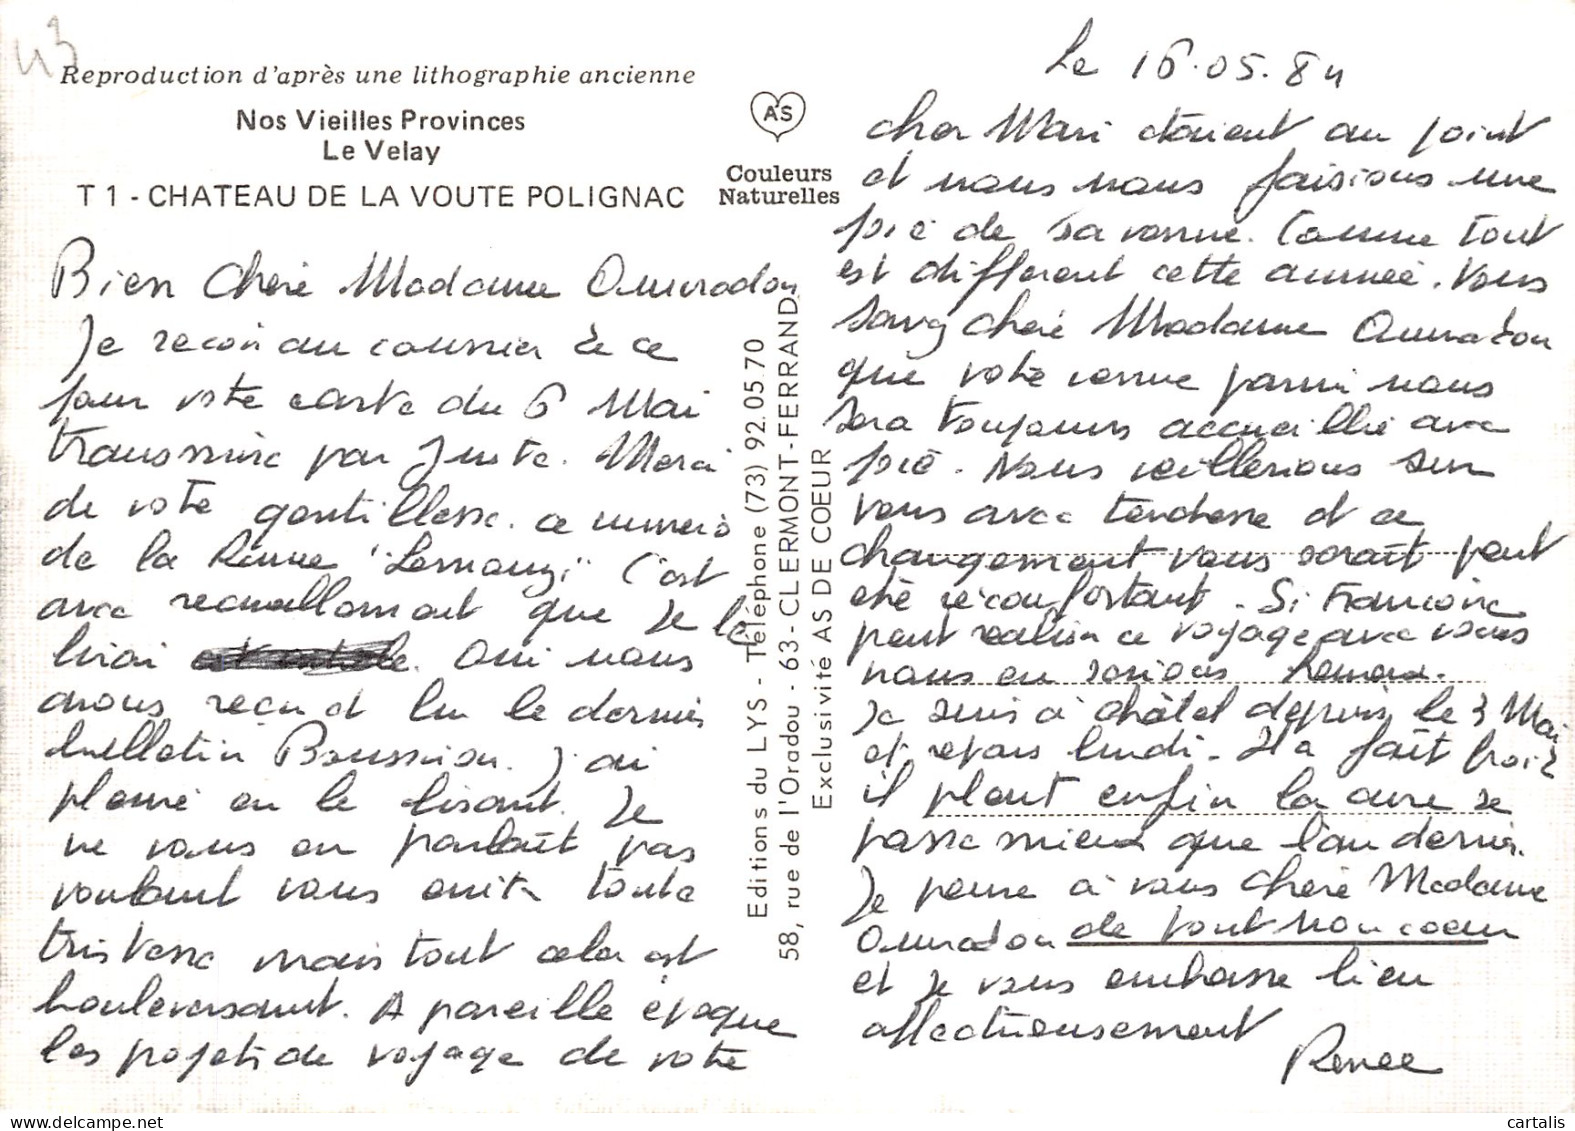 43
Reproduction d'après une lithographie ancienne
Nos Vieilles Provinces
Le Velay
T 1 - CHATEAU DE LA VOUTE POLIGNAC
AS
Couleurs
Naturelles
Editions du LYS - Téléphone (73) 92.05.70
58, rue de l'Oradou - 63 - CLERMONT-FERRAND
Exclusivité AS DE COEUR
Bien Chere Madame
Je recoi au courrier de ce
jour vote carte du 6 Mai
transmise par Juste. Merci
de vote gentillesse. ce numero
de la Revue "Lemouzi" C'est
avec recueillement que je le
lirai. Oui nous
avons reçu et lu le dernier
bulletin Boussion. J'ai
pleuré en le lisant. Je
ne vous en parlait pas
voulant vous eviter toute
tristesse mais tout cela est
bouleversant. A pareille époque
les projets de voyage de vote
Le 16.05.84
cher Mari étaient au point
et nous nous faisions une
joie de sa venue. Comme tout
est different cette année. Vous
savez chere Madame
que vote venue parmi nous
sera toujours accueillie avec
joie. Nous veillerions sur
vous avec tendresse et ce
changement vous serait peut
etre réconfortant. Si Francoise
peut realiser ce voyage avec vous
nous en serions heureux.
Je suis à châtel depuis le 3 Mai
et repars lundi. Il a fait froid
il pleut enfin la cure se
passe mieux que l'an dernier.
Je pense à vous chere Madame
de tout mon coeur
et je vous embrasse bien
affectueusement
Renée
cartalis
delcampe.net